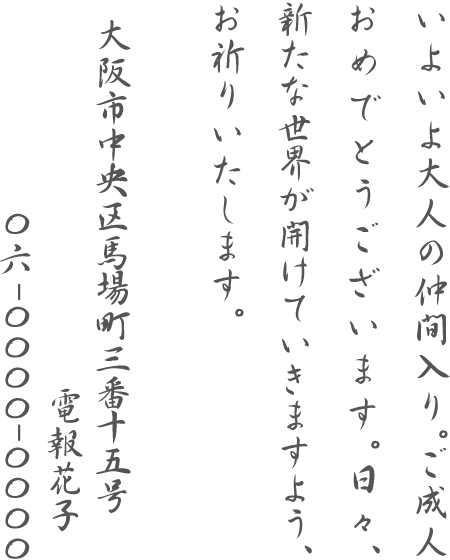 いよいよ大人の仲間入り。ご成人
おめでとうございます。日々、
新たな世界が開けていきますよう、
お祈りいたします。
大阪市中央区馬場町三番十五号
電報花子
〇六-〇〇〇〇-〇〇〇〇